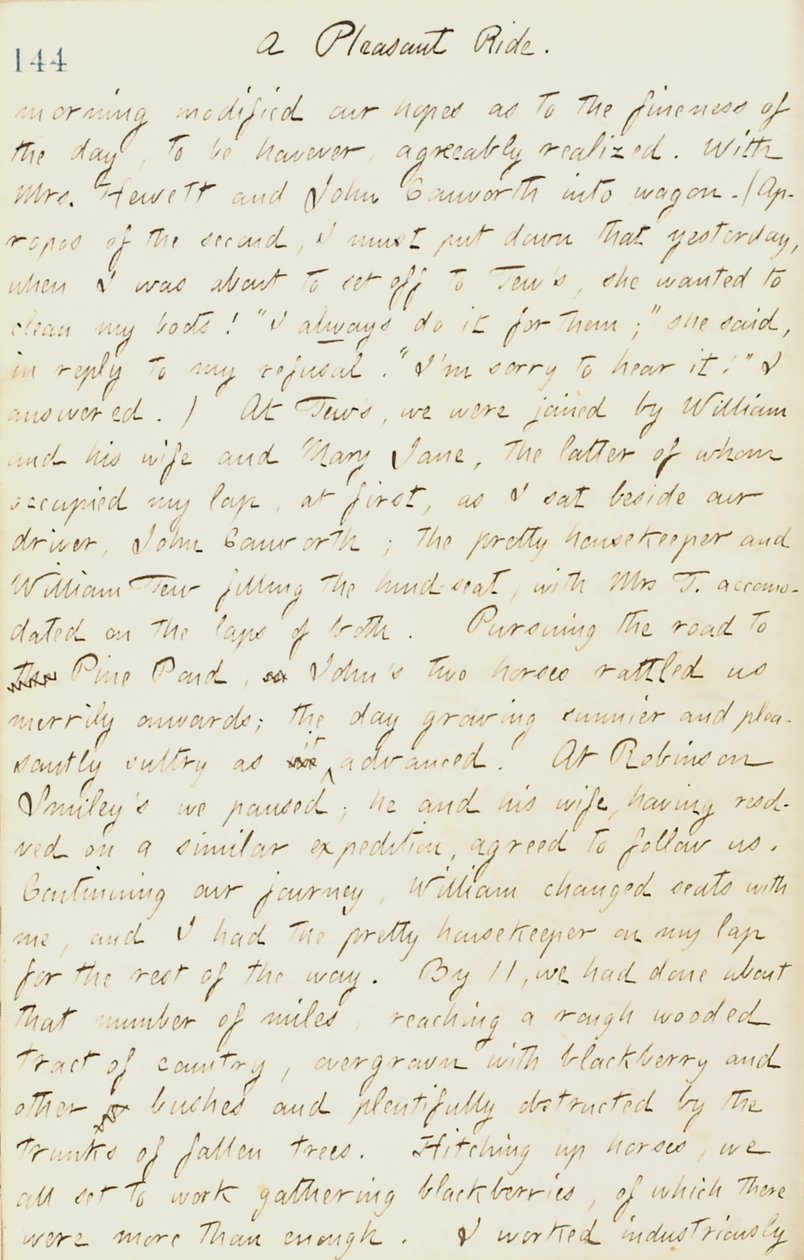 144
A Pleasant Ride.
morning modified our hopes as to the fineness of
the day, to be however, agreeably realized. With
Mrs. Hewett and John Conworth into wagon. (Ap-
ropos of the second, I must put down that yesterday,
when I was about to set off to Tew's, she wanted to
clean my boots! "I always do it for them;" she said,
in reply to my refusal. "I'm sorry to hear it!" I
answered.) At Tew's, we were joined by William
and his wife and Mary Jane, the latter of whom
occupied my lap, at first, as I sat beside our
driver, John Conworth; the pretty housekeeper and
William Tew filling the hind-seat, with Mrs T. accomo-
dated on the laps of both. Pursuing the road to
the Pine Pond, John's two horses rattled us
merrily onwards; the day growing sunnier and plea-
santly sultry as it advanced. At Robinson
Smiley's we paused; he and his wife, having resol-
ved on a similar expedition, agreed to follow us.
Continuing our journey, William changed seats with
me, and I had the pretty housekeeper on my lap
for the rest of the way. By 11, we had done about
that number of miles, reaching a rough wooded
tract of country, overgrown with blackberry and
other bushes and plentifully obstructed by the
trunks of fallen trees. Hitching up horses, we
all set to work gathering blackberries, of which there
were more than enough. I worked industriously